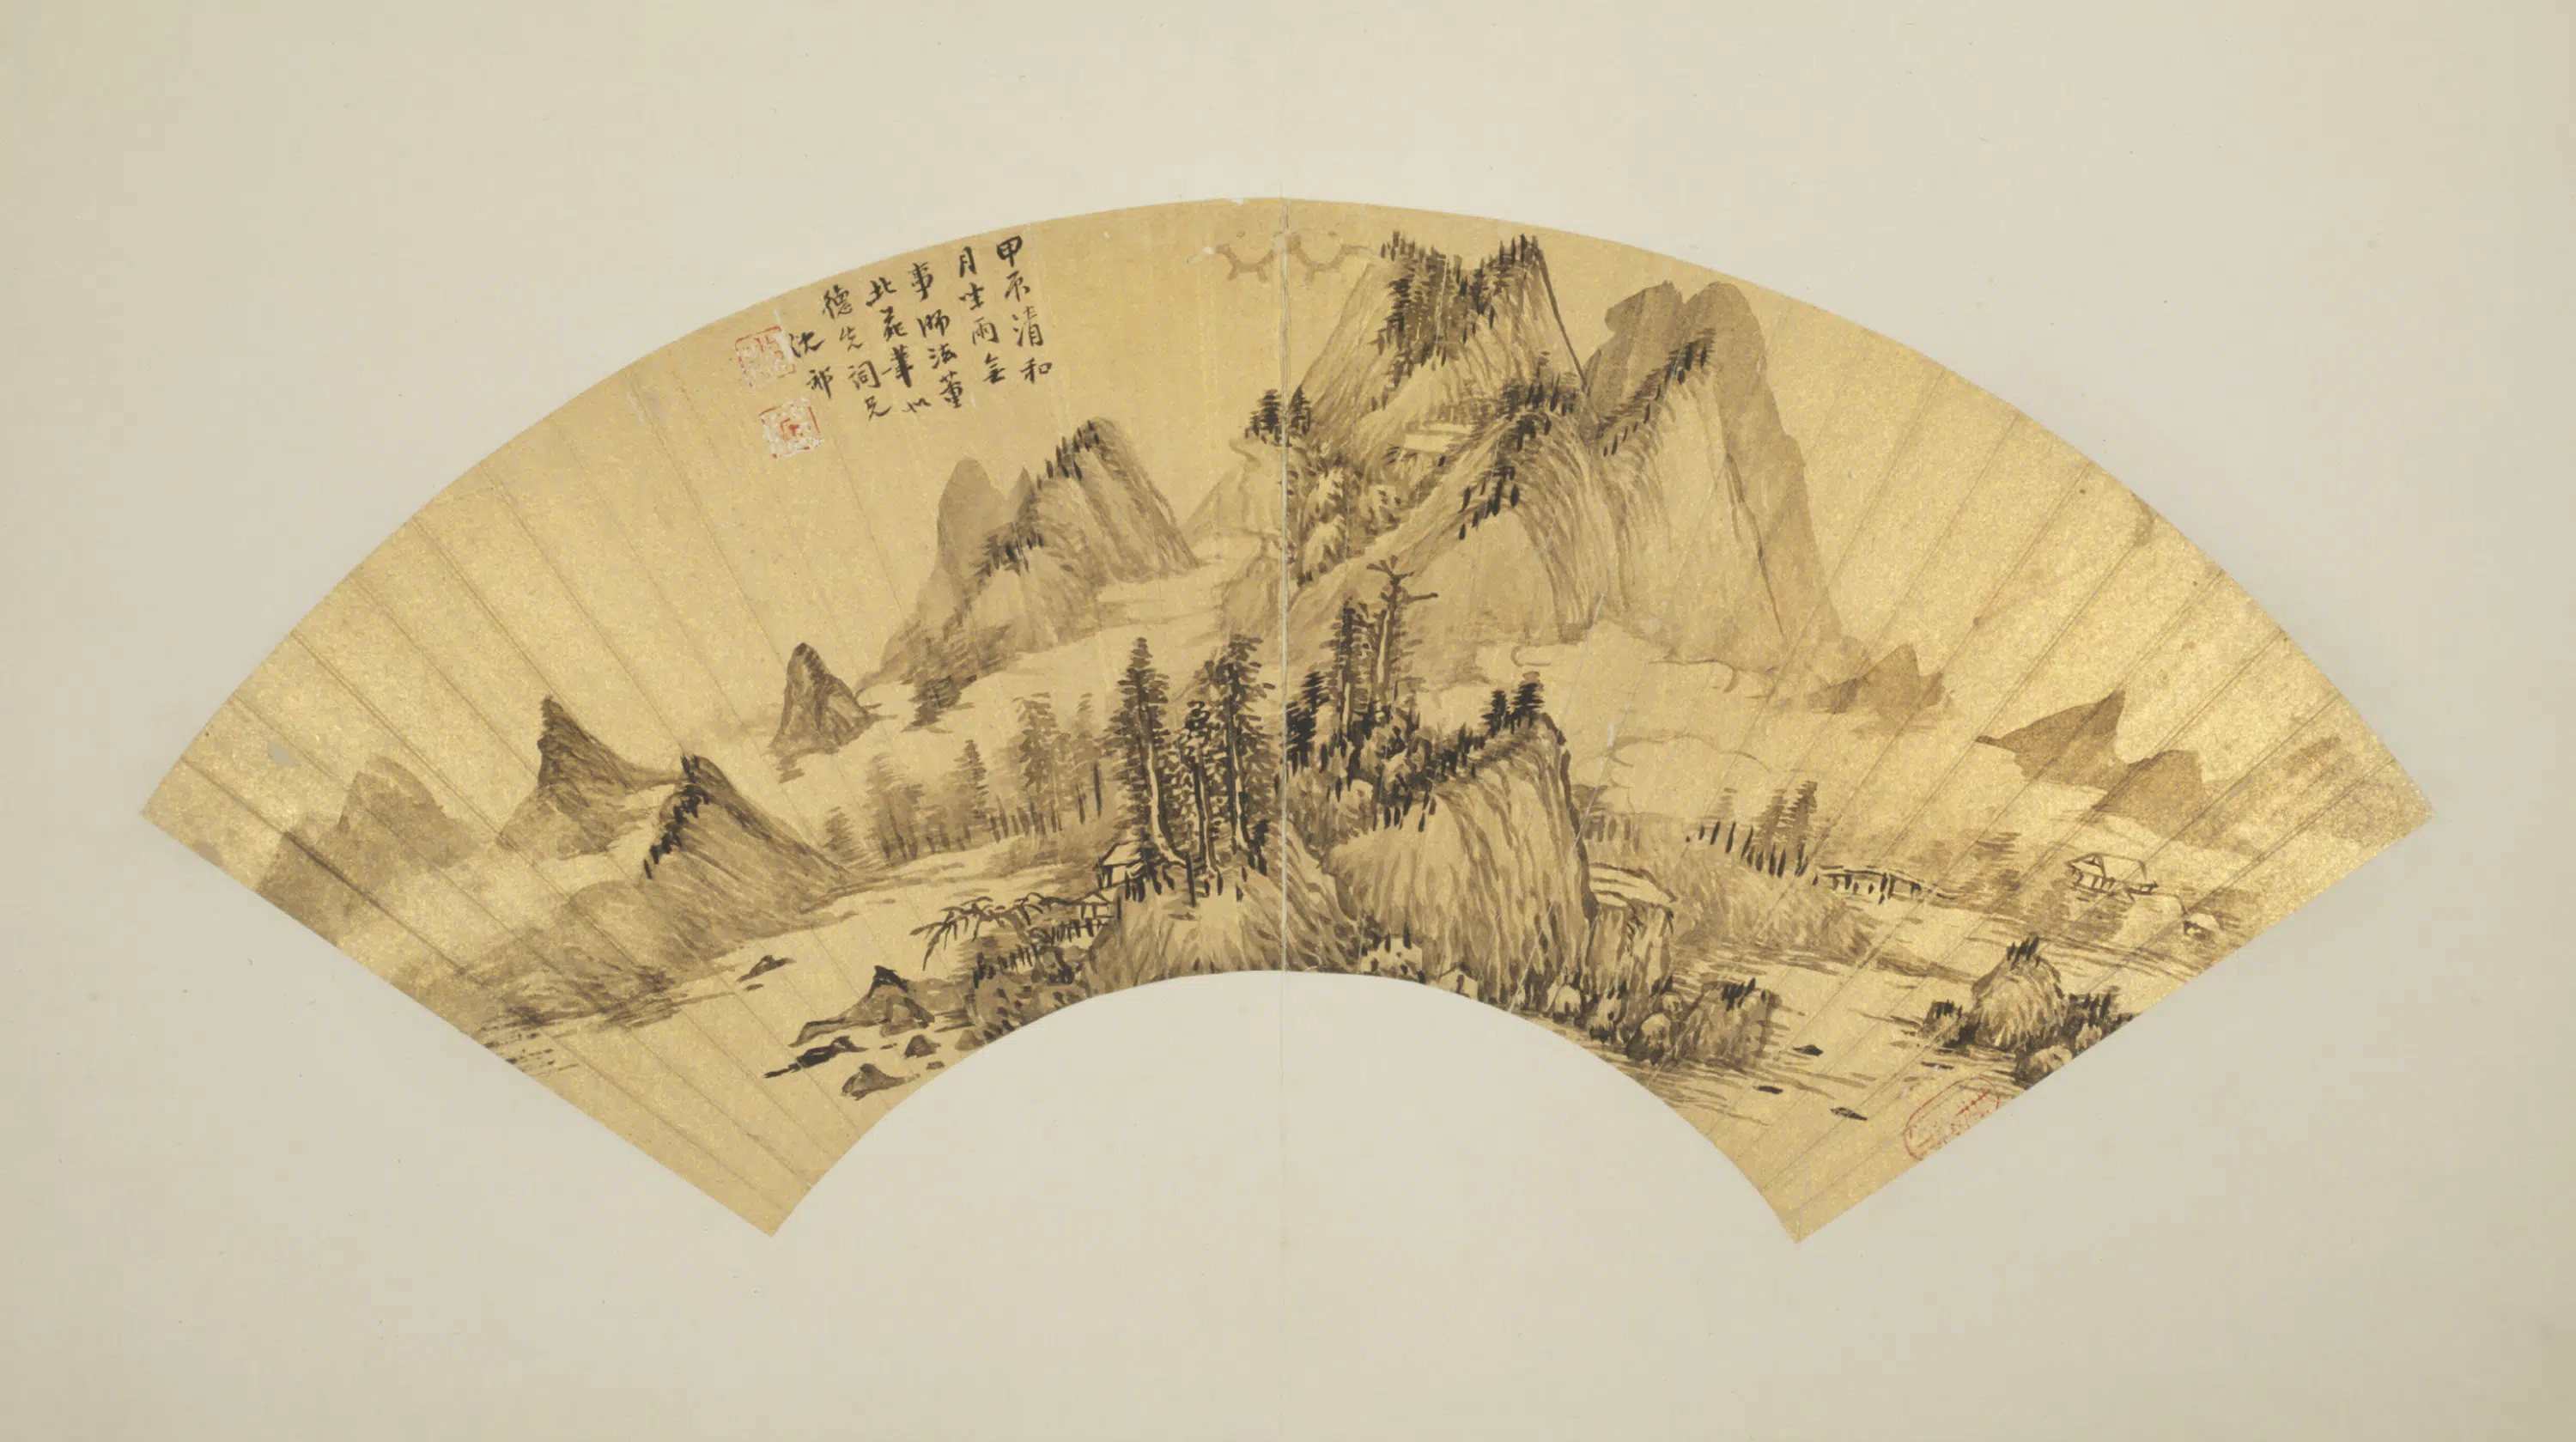 甲辰清和
月坐雨無
事師法董
北苑筆似
德先詞兄
沈祁